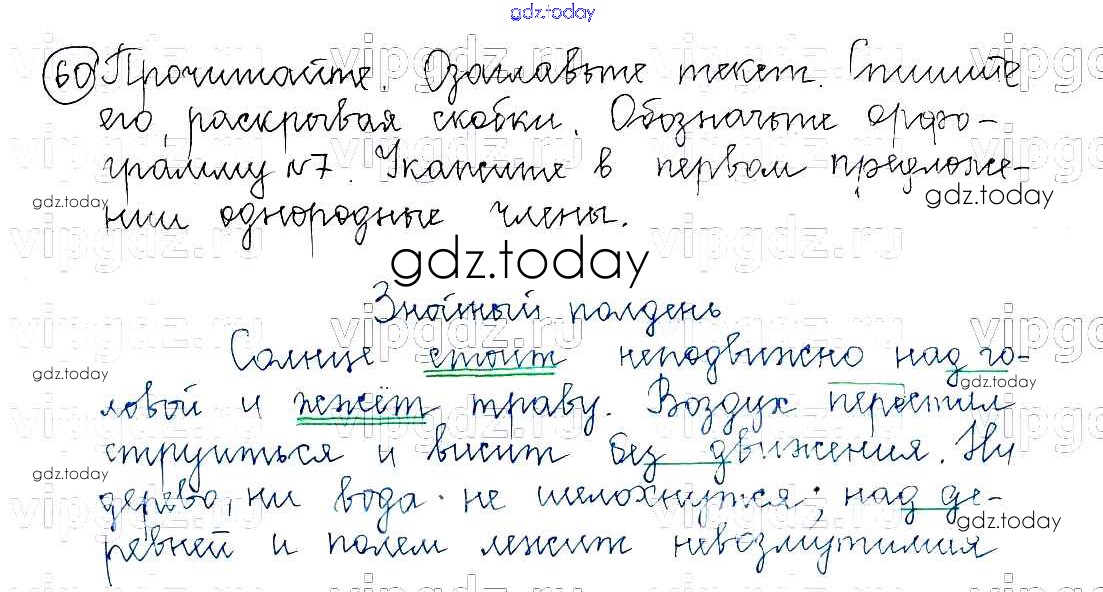 gdz.today
60 Прочитайте. Озаглавьте текст. Спишите
его, раскрывая скобки. Обозначьте орфо-
грамму №7. Укажите в первом предложе-
нии однородные члены.
gdz.today
gdz.today
gdz.today
Знойный полдень
Солнце стоит неподвижно над го-
gdz.today
gdz.today
ловой и жжёт траву. Воздух перестал
струиться и висит без движения. Ни
gdz.today
дерево, ни вода не шелохнутся; над де-
gdz.today
ревней и полем лежит невозмутимая